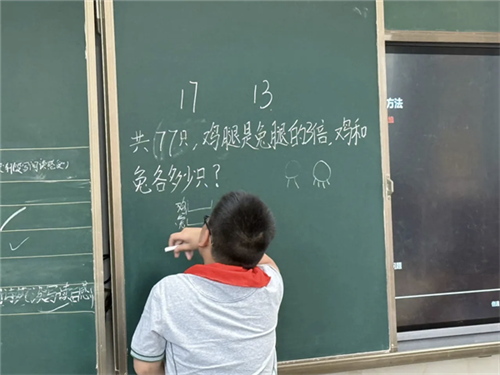 17 13
共177只,鸡腿是兔腿的3倍,鸡和
兔各多少只?
鸡
兔
方法